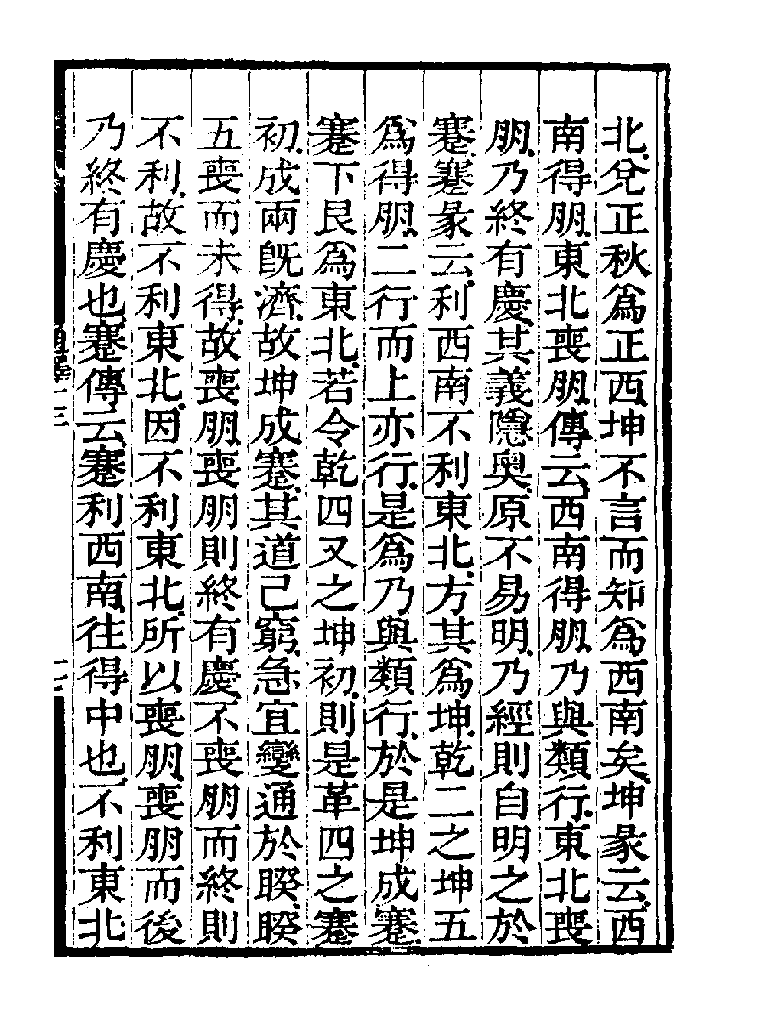 北兌正秋爲正西坤不言而知爲西南矣坤彖云西
南得朋東北喪朋傳云西南得朋乃與類行東北喪
朋乃終有慶其義隱奧原不易明乃經則自明之於
蹇蹇彖云利西南不利東北方其爲坤乾二之坤五
爲得朋二行而上亦行是爲乃與類行於是坤成蹇
蹇下艮爲東北若令乾四又之坤初則是革四之蹇
初成兩旣濟故坤成蹇其道己窮急宜變通於睽睽
五喪而未得故喪朋喪朋則終有慶不喪朋而終則
不利故不利東北因不利東北所以喪朋喪朋而後
乃終有慶也蹇傳云蹇利西南往得中也不利東北